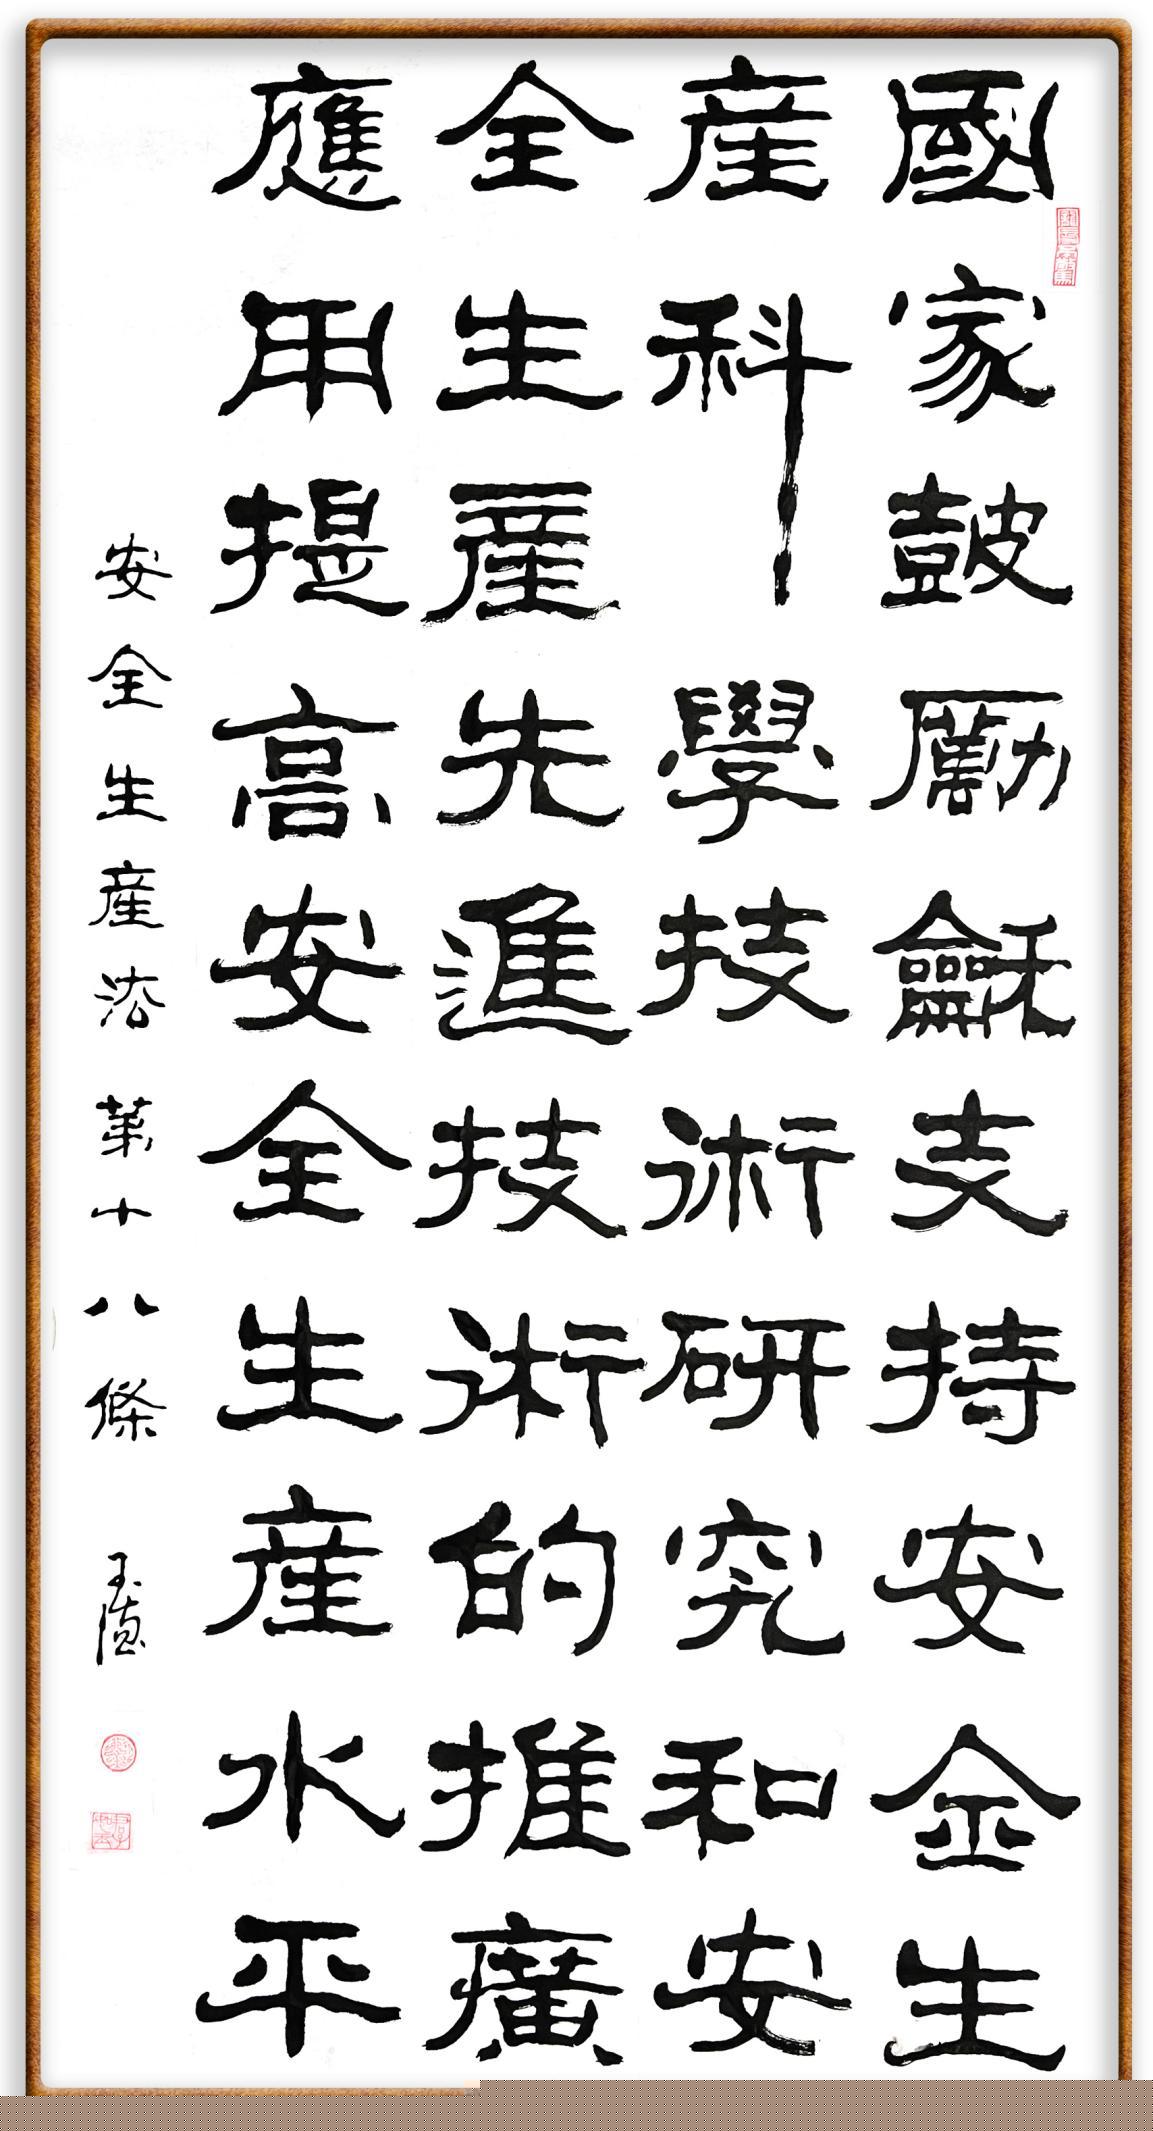 國家皷勵龢支持安全生
産科學技術研究和安
全生産先進技術的推廣
應用提高安全生産水平
安全生産法第十八條